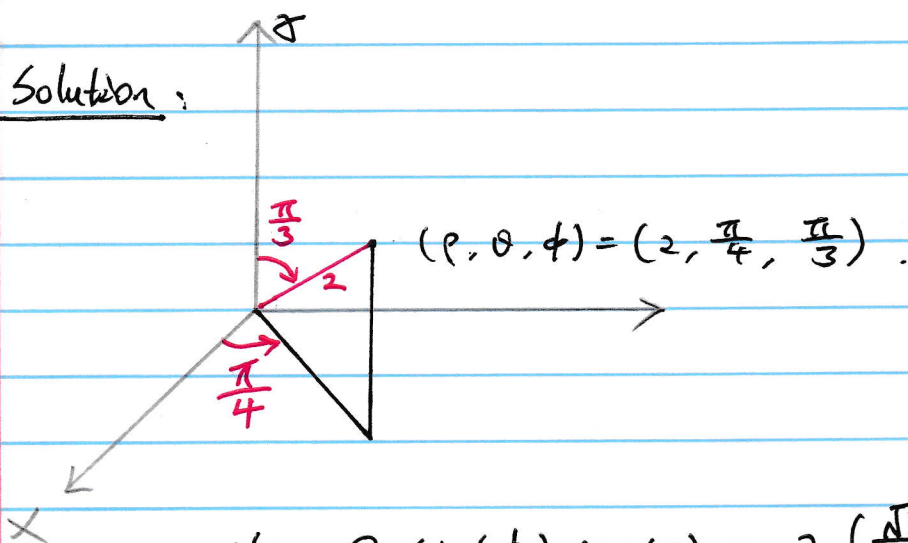 z
Solution :
π/3
(ρ, θ, φ) = (2, π/4, π/3) .
2
π/4
X